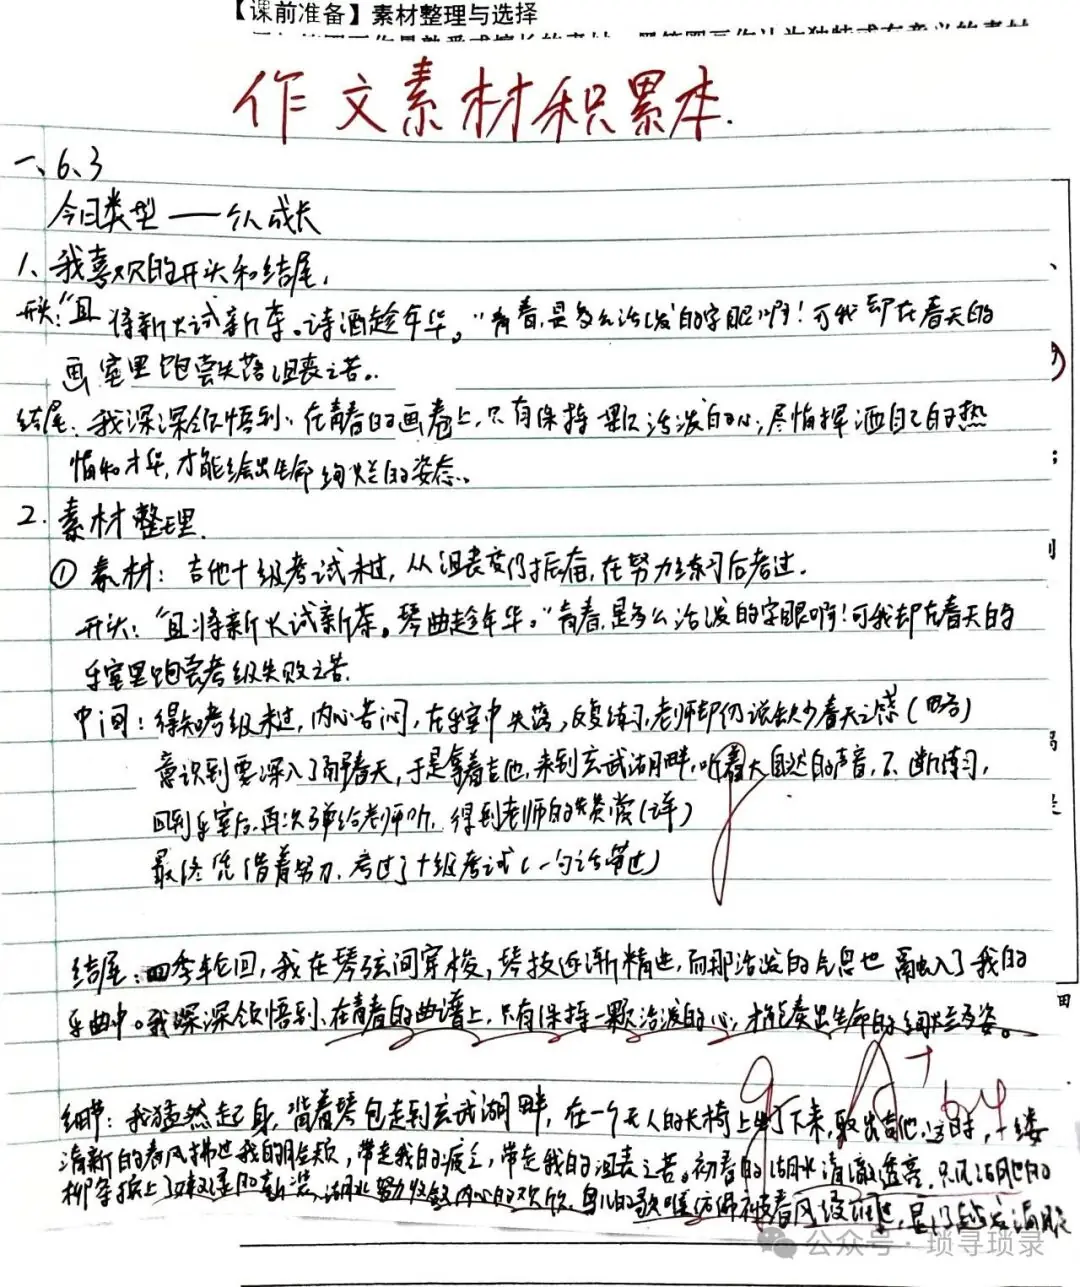 【课前准备】素材整理与选择
作文素材积累本.
一、6、3
今日类型——个人成长
1、我喜欢的开头和结尾,
开头:“且将新火试新茶。诗酒趁年华。”青春,是多么活泼的字眼啊!可我却在春天的
画室里饱尝失落沮丧之苦。
结尾:我深深领悟到:在青春的画卷上,只有保持一颗活泼的心,尽情挥洒自己的热
情和才华,才能绘出生命绚烂的姿态。
2.素材整理.
①素材:吉他十级考试未过,从沮丧变得振奋,在努力练习后考过.
开头:“且将新火试新茶。琴曲趁年华。”青春,是多么活泼的字眼啊!可我却在春天的
乐室里饱尝考级失败之苦.
中间:得知考级未过,内心苦闷,在乐室中失落,反复练习,老师却仍说缺少春天之感(略)
意识到要深入了解春天,于是拿着吉他,来到玄武湖畔,听着大自然的声音,不断练习,
回到乐室后,再次弹给老师听,得到老师的赞赏(详)
最终凭借着努力,考过了十级考试(一句话带过)
结尾:四季轮回,我在琴弦间穿梭,琴技逐渐精进,而那活泼的气息也融入了我的
乐曲中。我深深领悟到,在青春的曲谱上,只有保持一颗活泼的心,才能奏出生命的绚烂多姿。
A+
细节:我猛然起身,背着琴包走到玄武湖畔,在一个无人的长椅上坐了下来,取出吉他,这时,一缕
清新的春风拂过我的脸颊,带走我的疲乏,带走我的沮丧之苦。初春的湖水清澈透亮,只见湖边的
柳等 上了 的新 ,湖水努力收敛内心的欢欣,鸟儿的歌喉仿佛被春风 ,显得越发清脆
公众号·琐寻琐录